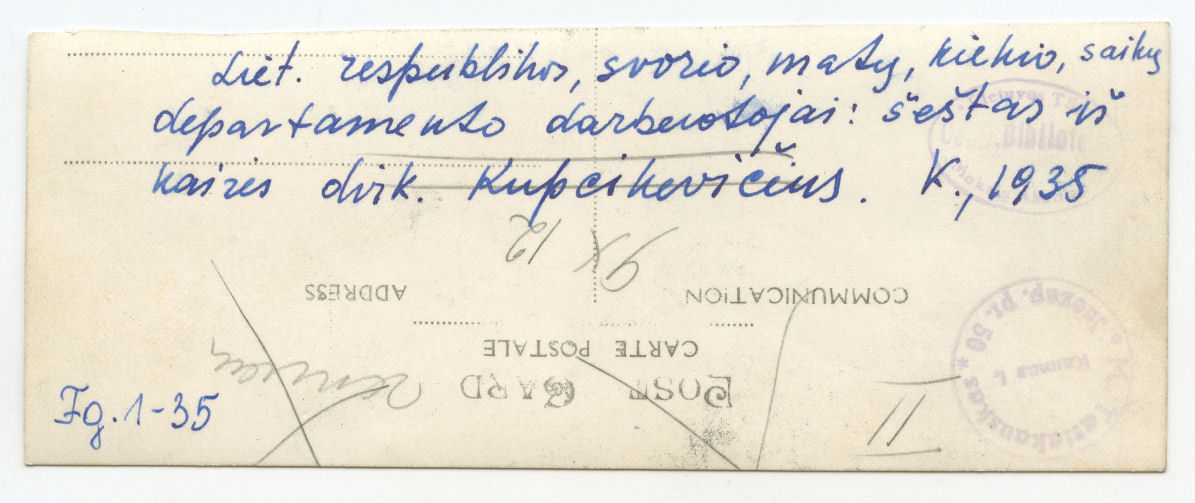 Liet. respublikos, svorio, matų, kiekio, saikų
departamento darbuotojai: šeštas iš
kairės dvik. Kupcikevičius. K., 1935
9 x 12
COMMUNICATION
ADDRESS
CARTE POSTALE
POST CARD
II
Fg. 1-35
Lietuvos
Kaunas
Juozap. pr. 50